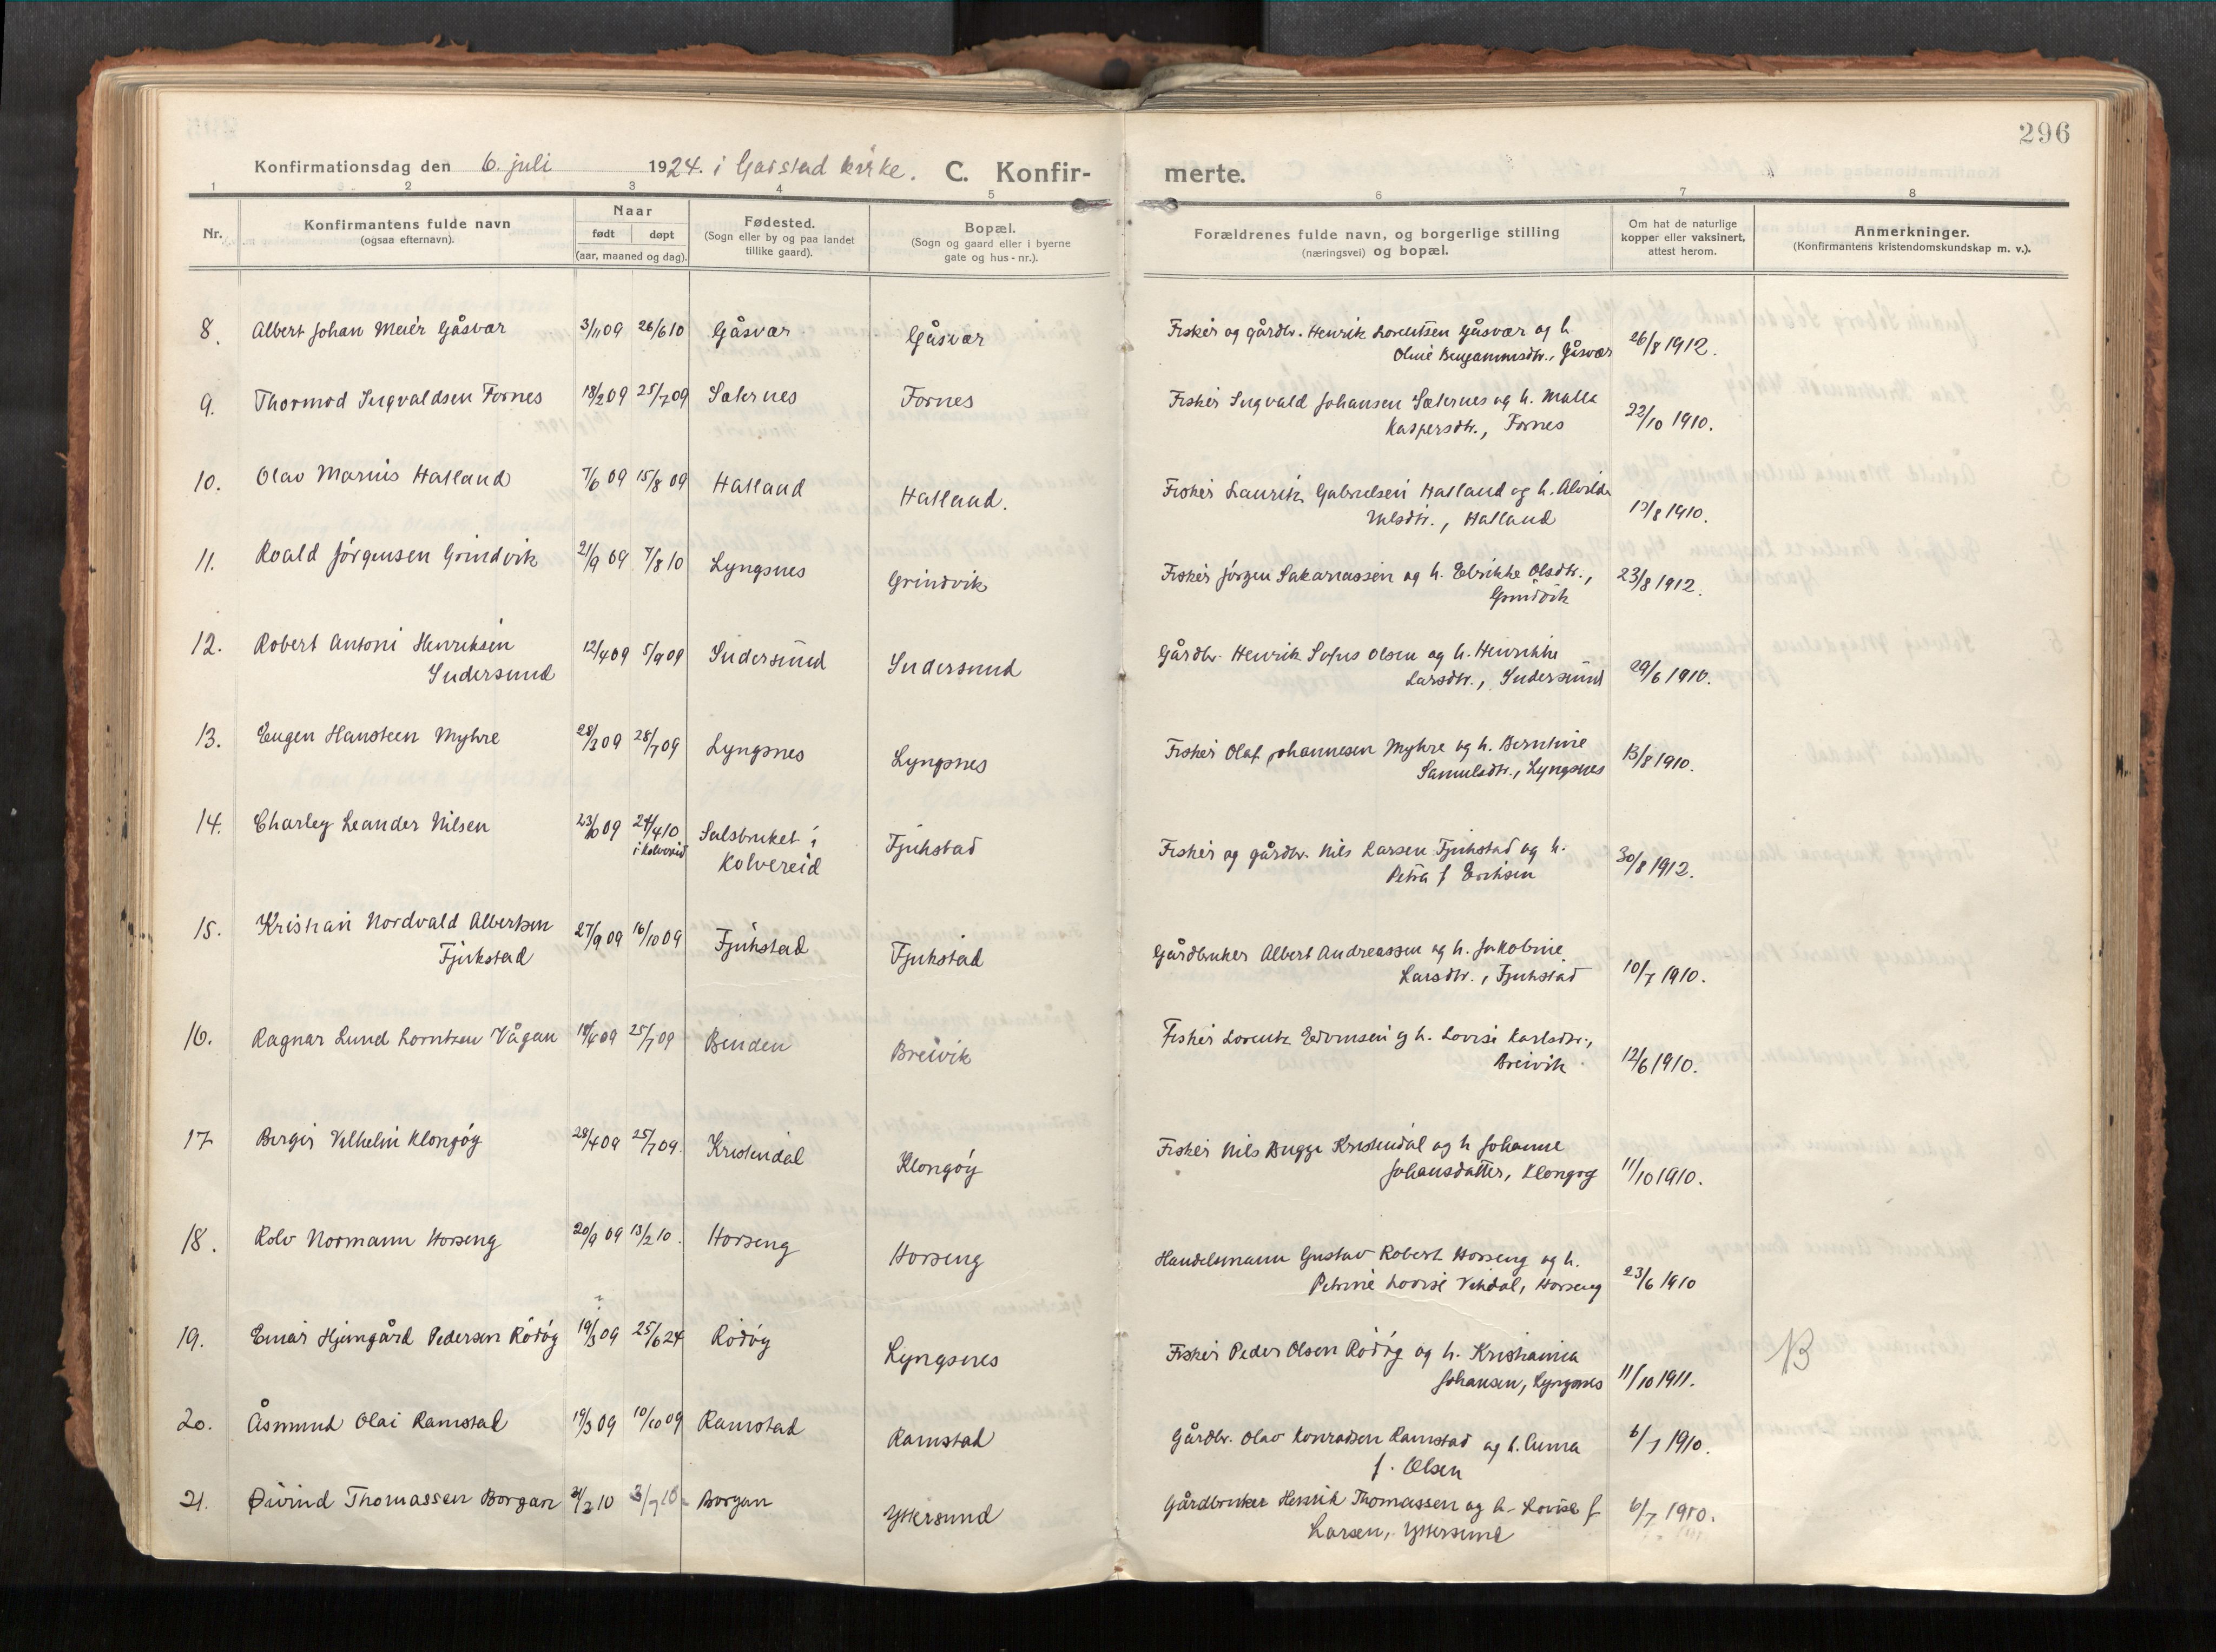 296
Konfirmationsdag den 6. juli 1924. i Garstad kirke. C. Konfirmerte.
1 2 3 4 5 6 7 8
Nr. Konfirmantens fulde navn (ogsaa efternavn). Naar født døpt (aar, maaned og dag). Fødested. (Sogn eller by og paa landet tillike gaard). Bopæl. (Sogn og gaard eller i byerne gate og hus-nr.). Forældrenes fulde navn, og borgerlige stilling (næringsvei) og bopæl. Om hat de naturlige kopper eller vaksinert, attest herom. Anmerkninger. (Konfirmantens kristendomskundskap m. v.).
8. Albert Johan Meier Gåsvær 3/11 09 26/6 10 Gåsvær Gåsvær Fisker og gårdbr. Henrik Lorentsen Gåsvær og h.
Oline Bengaminsdtr., Gåsvær 26/8 1912.
9. Thormod Ingvaldsen Fornes 18/2 09 25/7 09 Sæternes Fornes Fisker Ingvald Johansen Sæternes og h. Malla
Kaspersdtr., Fornes 22/10 1910.
10. Olav Marius Halland 7/6 09 15/8 09 Halland Halland. Fisker Laurits Gabrielsen Halland og h. Alvilda
Nilsdtr., Halland 13/8 1910.
11. Roald Jørgensen Grindvik 21/9 09 7/8 10 Lyngsnes Grindvik Fisker Jørgen Sakariassen og h. Elrikke Olsdtr.,
Grindvik 23/8 1912.
12. Robert Antoni Henriksen
Indersund 12/4 09 5/9 09 Indersund Indersund Gårdbr. Henrik Sefus Olsen og h. Henrikke
Larsdtr., Indersund 29/6 1910.
13. Eugen Hansteen Myhre 28/3 09 28/7 09 Lyngsnes Lyngsnes Fisker Olaf Johannesen Myhre og h. Berntine
Samulsdtr., Lyngsnes 13/8 1910.
14. Charley Leander Nilsen 09 24/4 10
i Kolvereid Salsbruket i
Kolvereid Fjukstad Fisker og gårdbr. Nils Larsen Fjukstad og h.
Petra f Eriksen 30/8 1912.
15. Kristian Nordvald Albertsen
Fjukstad 27/9 09 16/10 09 Fjukstad Fjukstad Gårdbruker Albert Andreassen og h. Jakobine
Larsdtr., Fjukstad 10/7 1910.
16. Ragnar Lund Lorntzen Vågan 19/4 09 25/7 09 Benden Breivik Fisker Lorents Edvinsen og h. Lovise Karlsdtr.,
Breivik 12/6 1910.
17 Birger Vilhelm Klongøy 28/4 09 25/7 09. Kristendal Klongøy Fisker Nils Bugge Kristendal og h Johanne
Johansdatter, Klongøy 11/10 1910.
18. Rolv Normann Horseng 20/9 09 13/2 10. Horseng Horseng Handelsmann Gustav Robert Horseng og h.
Petrine Lovise Vikdal, Horseng 23/6 1910
19. Einar Hjemgård Pedersen Rødøy 19/3 09 25/6 24 Rødøy Lyngsnes Fisker Peder Olsen Rødøy og h. Kristianna
Johansen, Lyngsnes 11/10 1911. B
20. Åsmund Olai Ramstad 19/3 09 10/10 09 Ramstad Ramstad Gårdbr. Olav Konradsen Ramstad og h. Anna
f. Olsen 6/7 1910.
21. Øivind Thomassen Borgan 10 3/7 10 Borgan Yttersund Gårdbruker Henrik Thomassen og h. Lovise f
Larsen, Yttersund 6/7 1910.